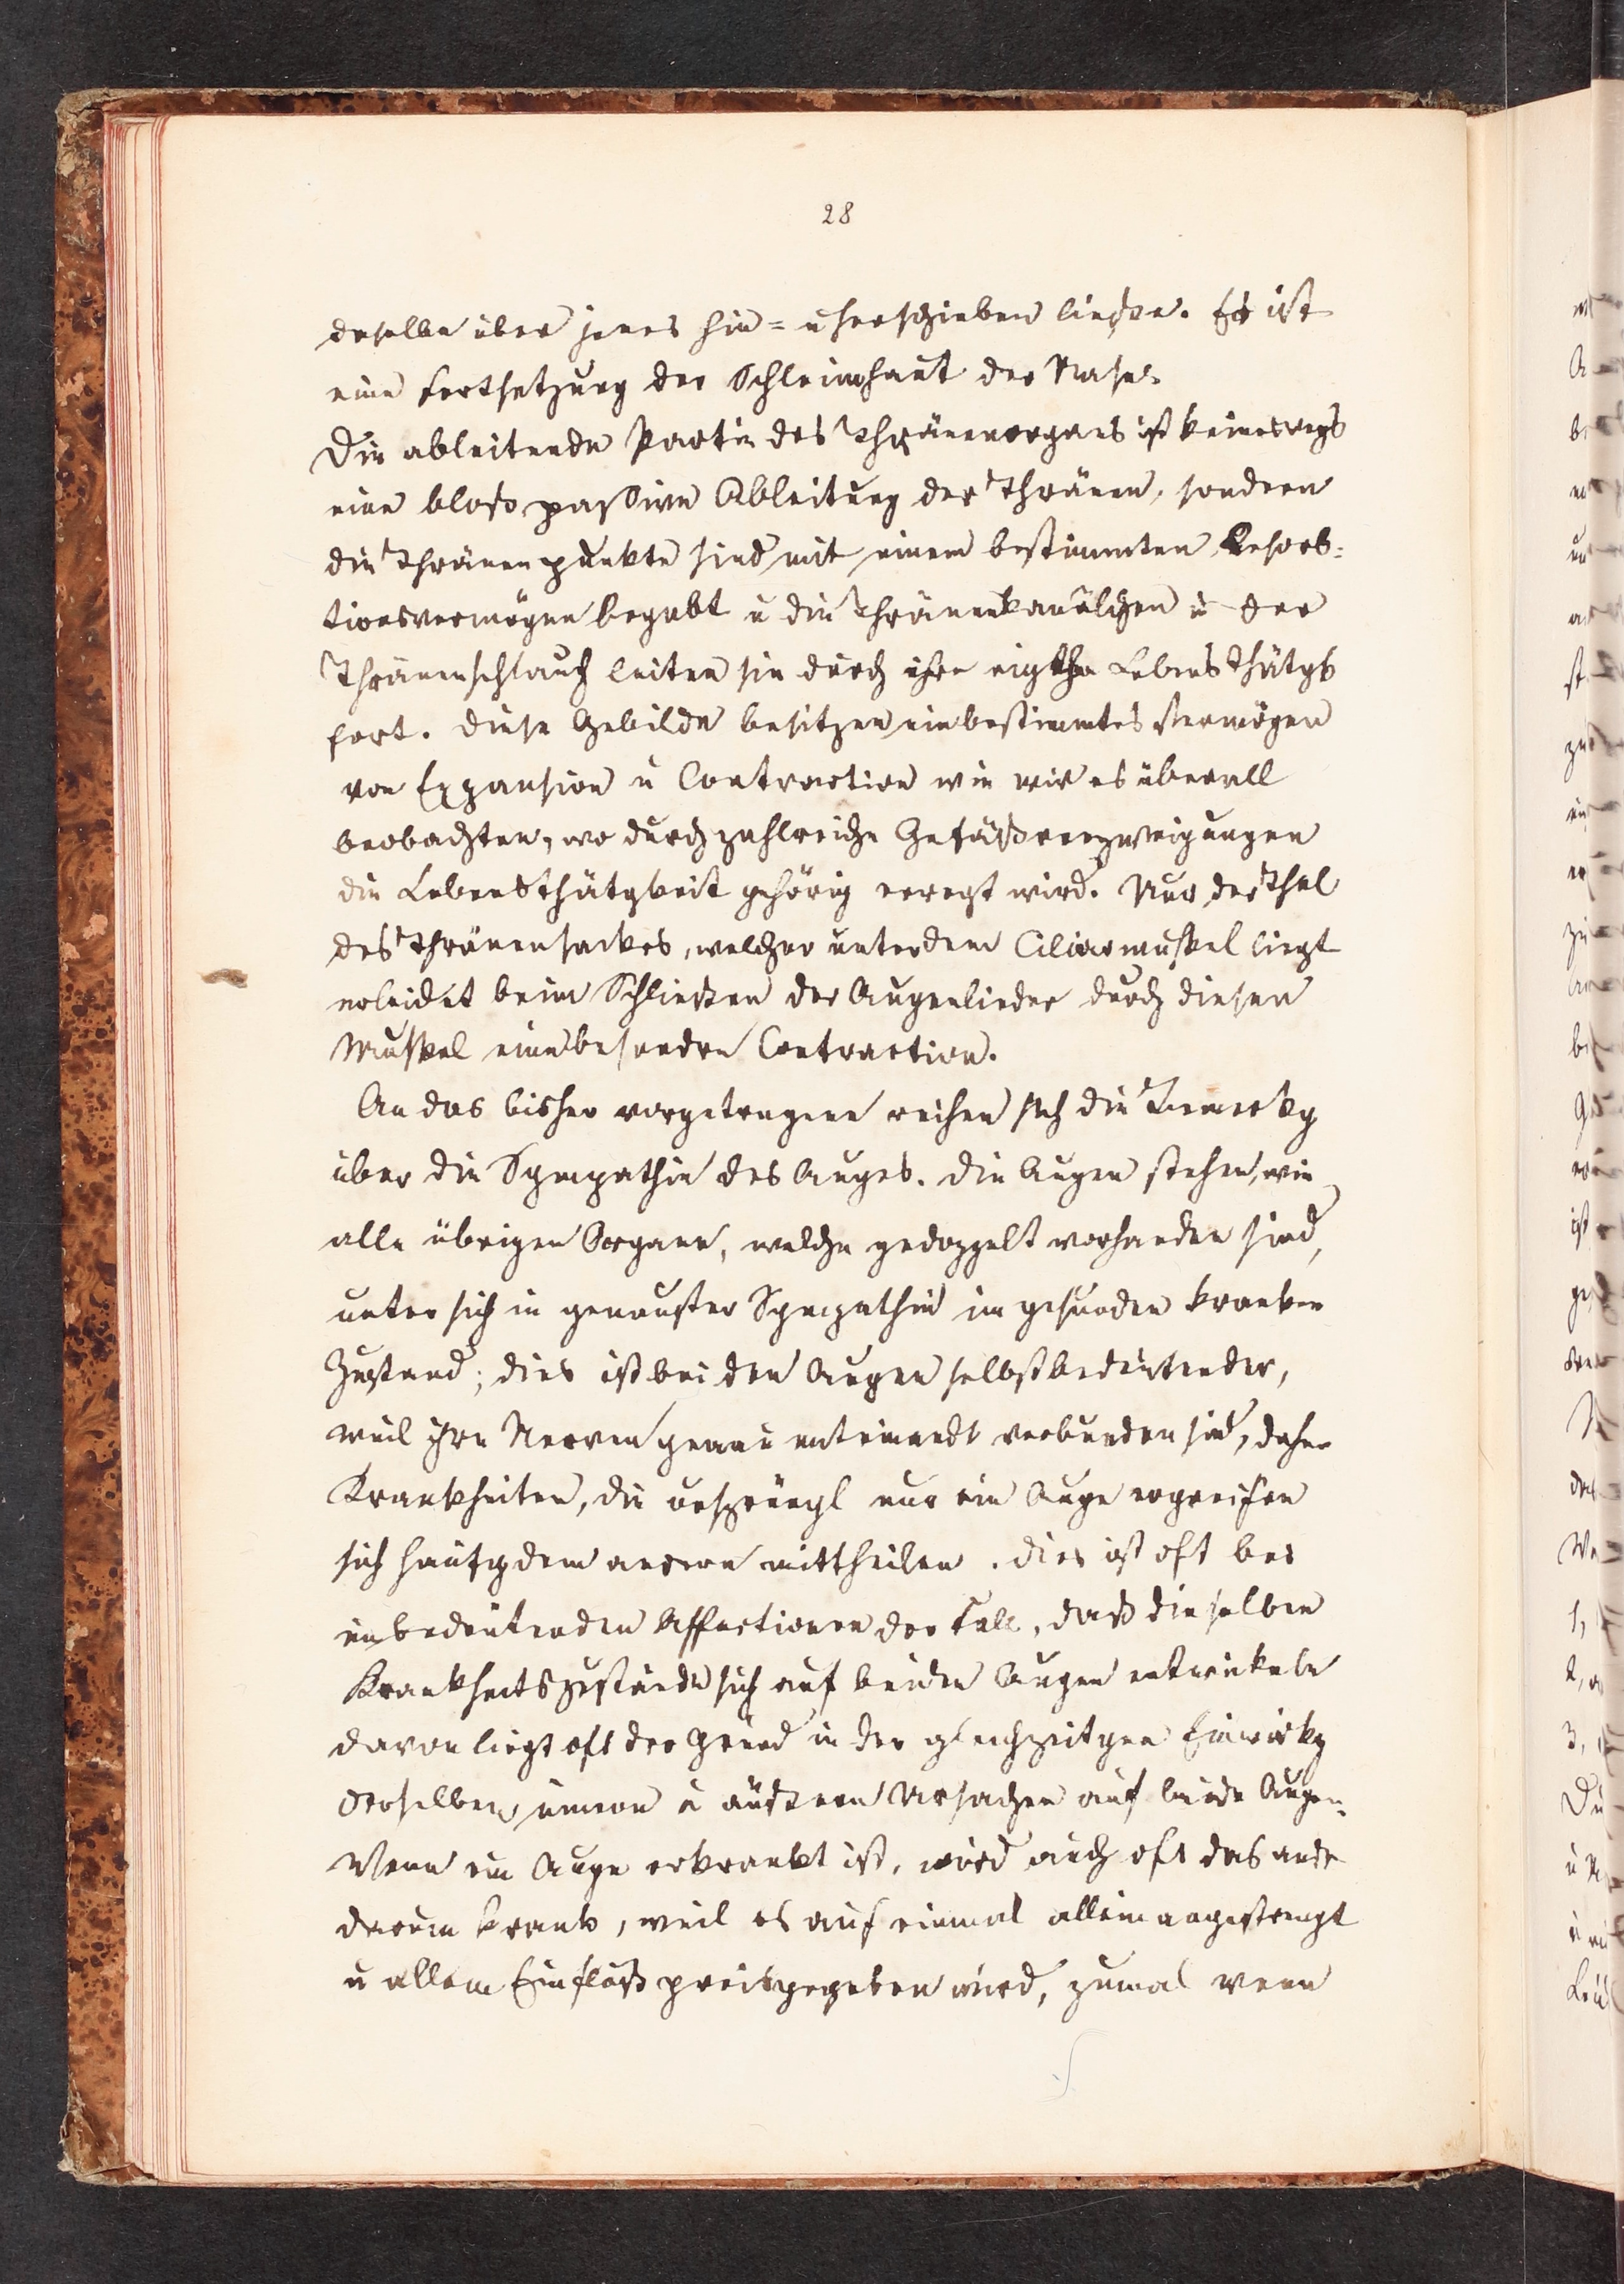 28
deselbe über jenes hin= u herschieben ließen. Es ist
eine Fortsetzung der Schleimhaut der Nase.
Die ableitende Partie des Thränenorgans ist keineswegs
eine bloß passive Ableitung der Thränen, sondern
die Thränenpunkte sind mit einem bestimmten Resorb=
tionsvermögen begabt u die Thränenkanälchen u der
Thränenschlauch leiten sie durch ihre eigthe Lebensthätgk
fort. Diese Gebilde besitzen ein bestimmtes Vermögen
von Expansion u Contraction wie wir es überall
beobachten, wo durch zahlreiche Gefäßverzweigungen
die Lebensthätgkeit gehörig erregt wird. Nur der Thel
des Thränensackes, welcher unter dem Ciliarmuskel liegt
erleidet beim Schließen der Augenlieder durch diesen
Muskel eine besondre Contraction.
An das bisher vorgetragene reihen sich die Bemerkg
über die Sympathie des Auges. Die Augen stehen, wie
alle übrigen Organe, welche gedoppelt vorhanden sind,
unter sich in genauster Sympathie im gesunden kranken
Zustand; dies ist bei den Augen selbst bedeutender,
weil ihre Nerven genau unt einandr verbunden sind, daher
Krankheiten, die ursprüngl nur ein Auge ergreifen
sich häufg dem andern mittheilen. Dies ist oft bei
unbedeutenden Affectionen der Fall, daß dieselben
Krankheitszustände sich auf beiden Augen entwickeln
davon liegt oft der Grund in der gleichzeitgen Einwirkg
derselben innern u äußern Ursachen auf beide Augen.
Wenn ein Auge erkrankt ist, wird auch oft das andr
darum krank, weil es auf einmal allein angestrengt
u allem Einfluß preisgegeben wird, zumal wenn